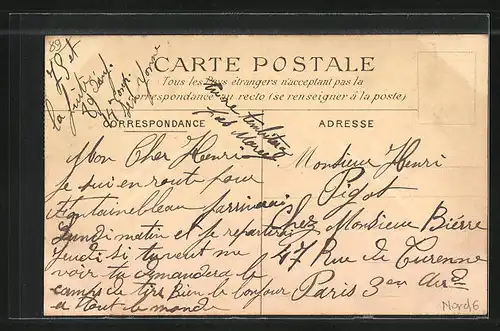 89
CARTE POSTALE
Tous les Pays étrangers n'acceptant pas la
correspondance au recto (se renseigner à la poste)
CORRESPONDANCE
ADRESSE
Mon Cher Henri
Je sui en route pour
Fontainebleau
Lundi matin et je repartirai
Jeudi si tu veut me
voir tu demandera le
camps de tire Bien le bonjour
a tout le monde
Monsieur Henri
Pigot
Chez Monsieur Bierre
47 Rue de Turenne
Paris 3en Ard
Nord 6